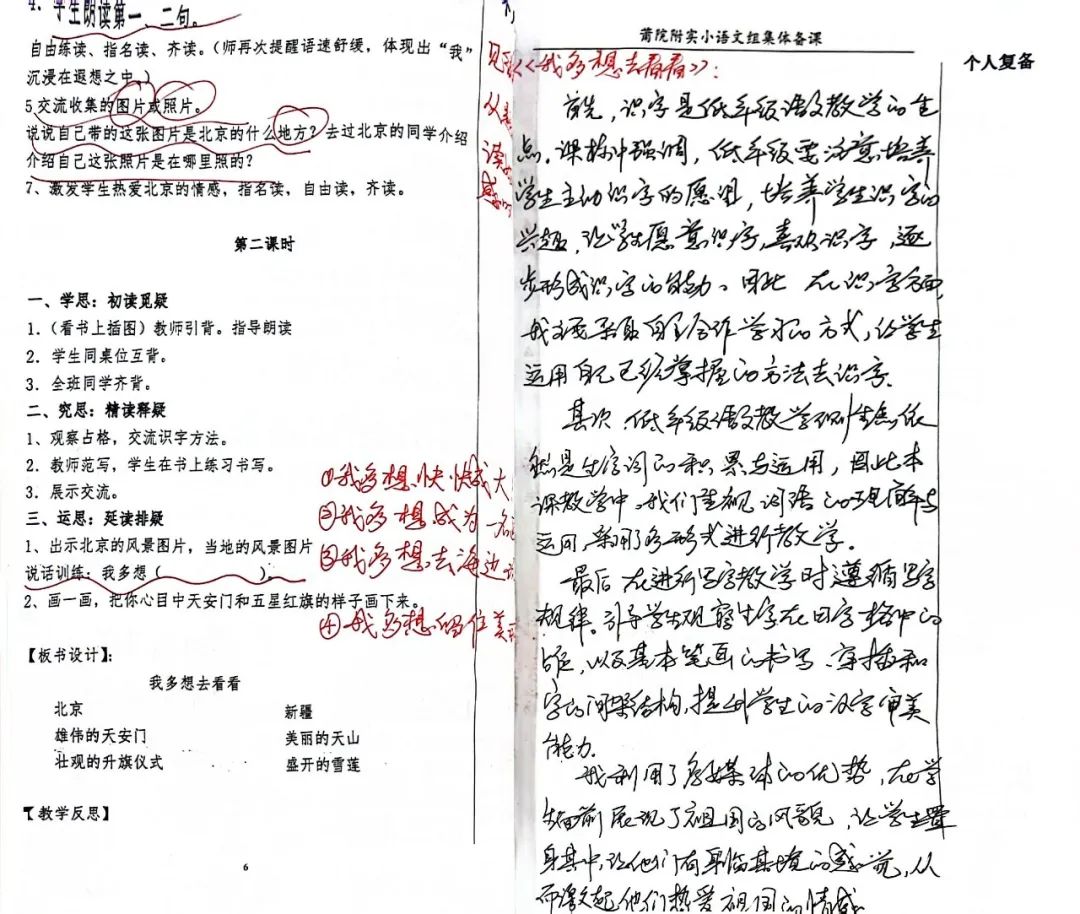 4. 学生朗读第一、二句。
自由练读、指名读、齐读。（师再次提醒语速舒缓，体现出“我”
沉浸在遐想之中。）
5 交流收集的图片或照片。
说说自己带的这张图片是北京的什么地方？去过北京的同学介绍
介绍自己这张照片是在哪里照的？
7、激发学生热爱北京的情感，指名读，自由读，齐读。
第二课时
一、学思：初读觅疑
1.（看书上插图）教师引背。指导朗读
2. 学生同桌位互背。
3、全班同学齐背。
二、究思：精读释疑
1、观察占格，交流识字方法。
2. 教师范写，学生在书上练习书写。
3. 展示交流。
三、运思：延读排疑
1、出示北京的风景图片，当地的风景图片
说话训练：我多想（　　　）。
2、画一画，把你心目中天安门和五星红旗的样子画下来。
①我多想快快成大
②我多想成为一名
③我多想去海边
④我多想
【板书设计】：
我多想去看看
北京 新疆
雄伟的天安门 美丽的天山
壮观的升旗仪式 盛开的雪莲
【教学反思】
6
莆院附实小语文组集体备课
个人复备
《我多想去看看》：
首先，识字是低年级语文教学的重
点。课标中强调，低年级要注意培养
学生主动识字的愿望，培养学生识字的
兴趣，让学生愿意识字，喜欢识字，逐
步形成识字的能力。因此 在识字方面
我主要采取自主合作学习的方式，让学生
运用自己已经掌握的方法去识字。
其次，低年级语文教学的重点依
然是生字词的积累与运用，因此本
课教学中，我们重视词语的理解与
运用，采用了多形式进行教学。
最后 在进行写字教学时遵循写字
规律。引导学生观察生字在田字格中的
以及基本笔画的书写、穿插和
字的间架结构，提升学生的汉字审美
能力。
我利用了多媒体的优势，在学
生面前展现了祖国的风貌，让学生置
身其中，让他们有身临其境的感觉，从
而激发起他们热爱祖国的情感